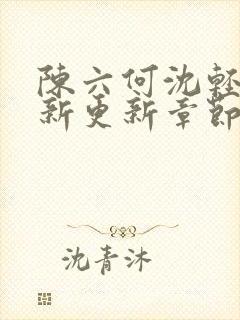 陳六何沈輕
新更新章節
沈青沐